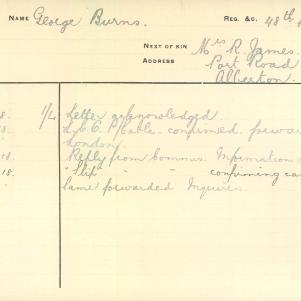 NAME George Burns. REG. &C. 48th
NEXT OF KIN Mrs R. James.
ADDRESS Port Road
Alberton.
8. 1/4 Letter acknowledged.
8. cable confirmed forward
London
18. Reply from Commns. Information
18. "Slip" " " confirming ca
same forwarded Inquires.